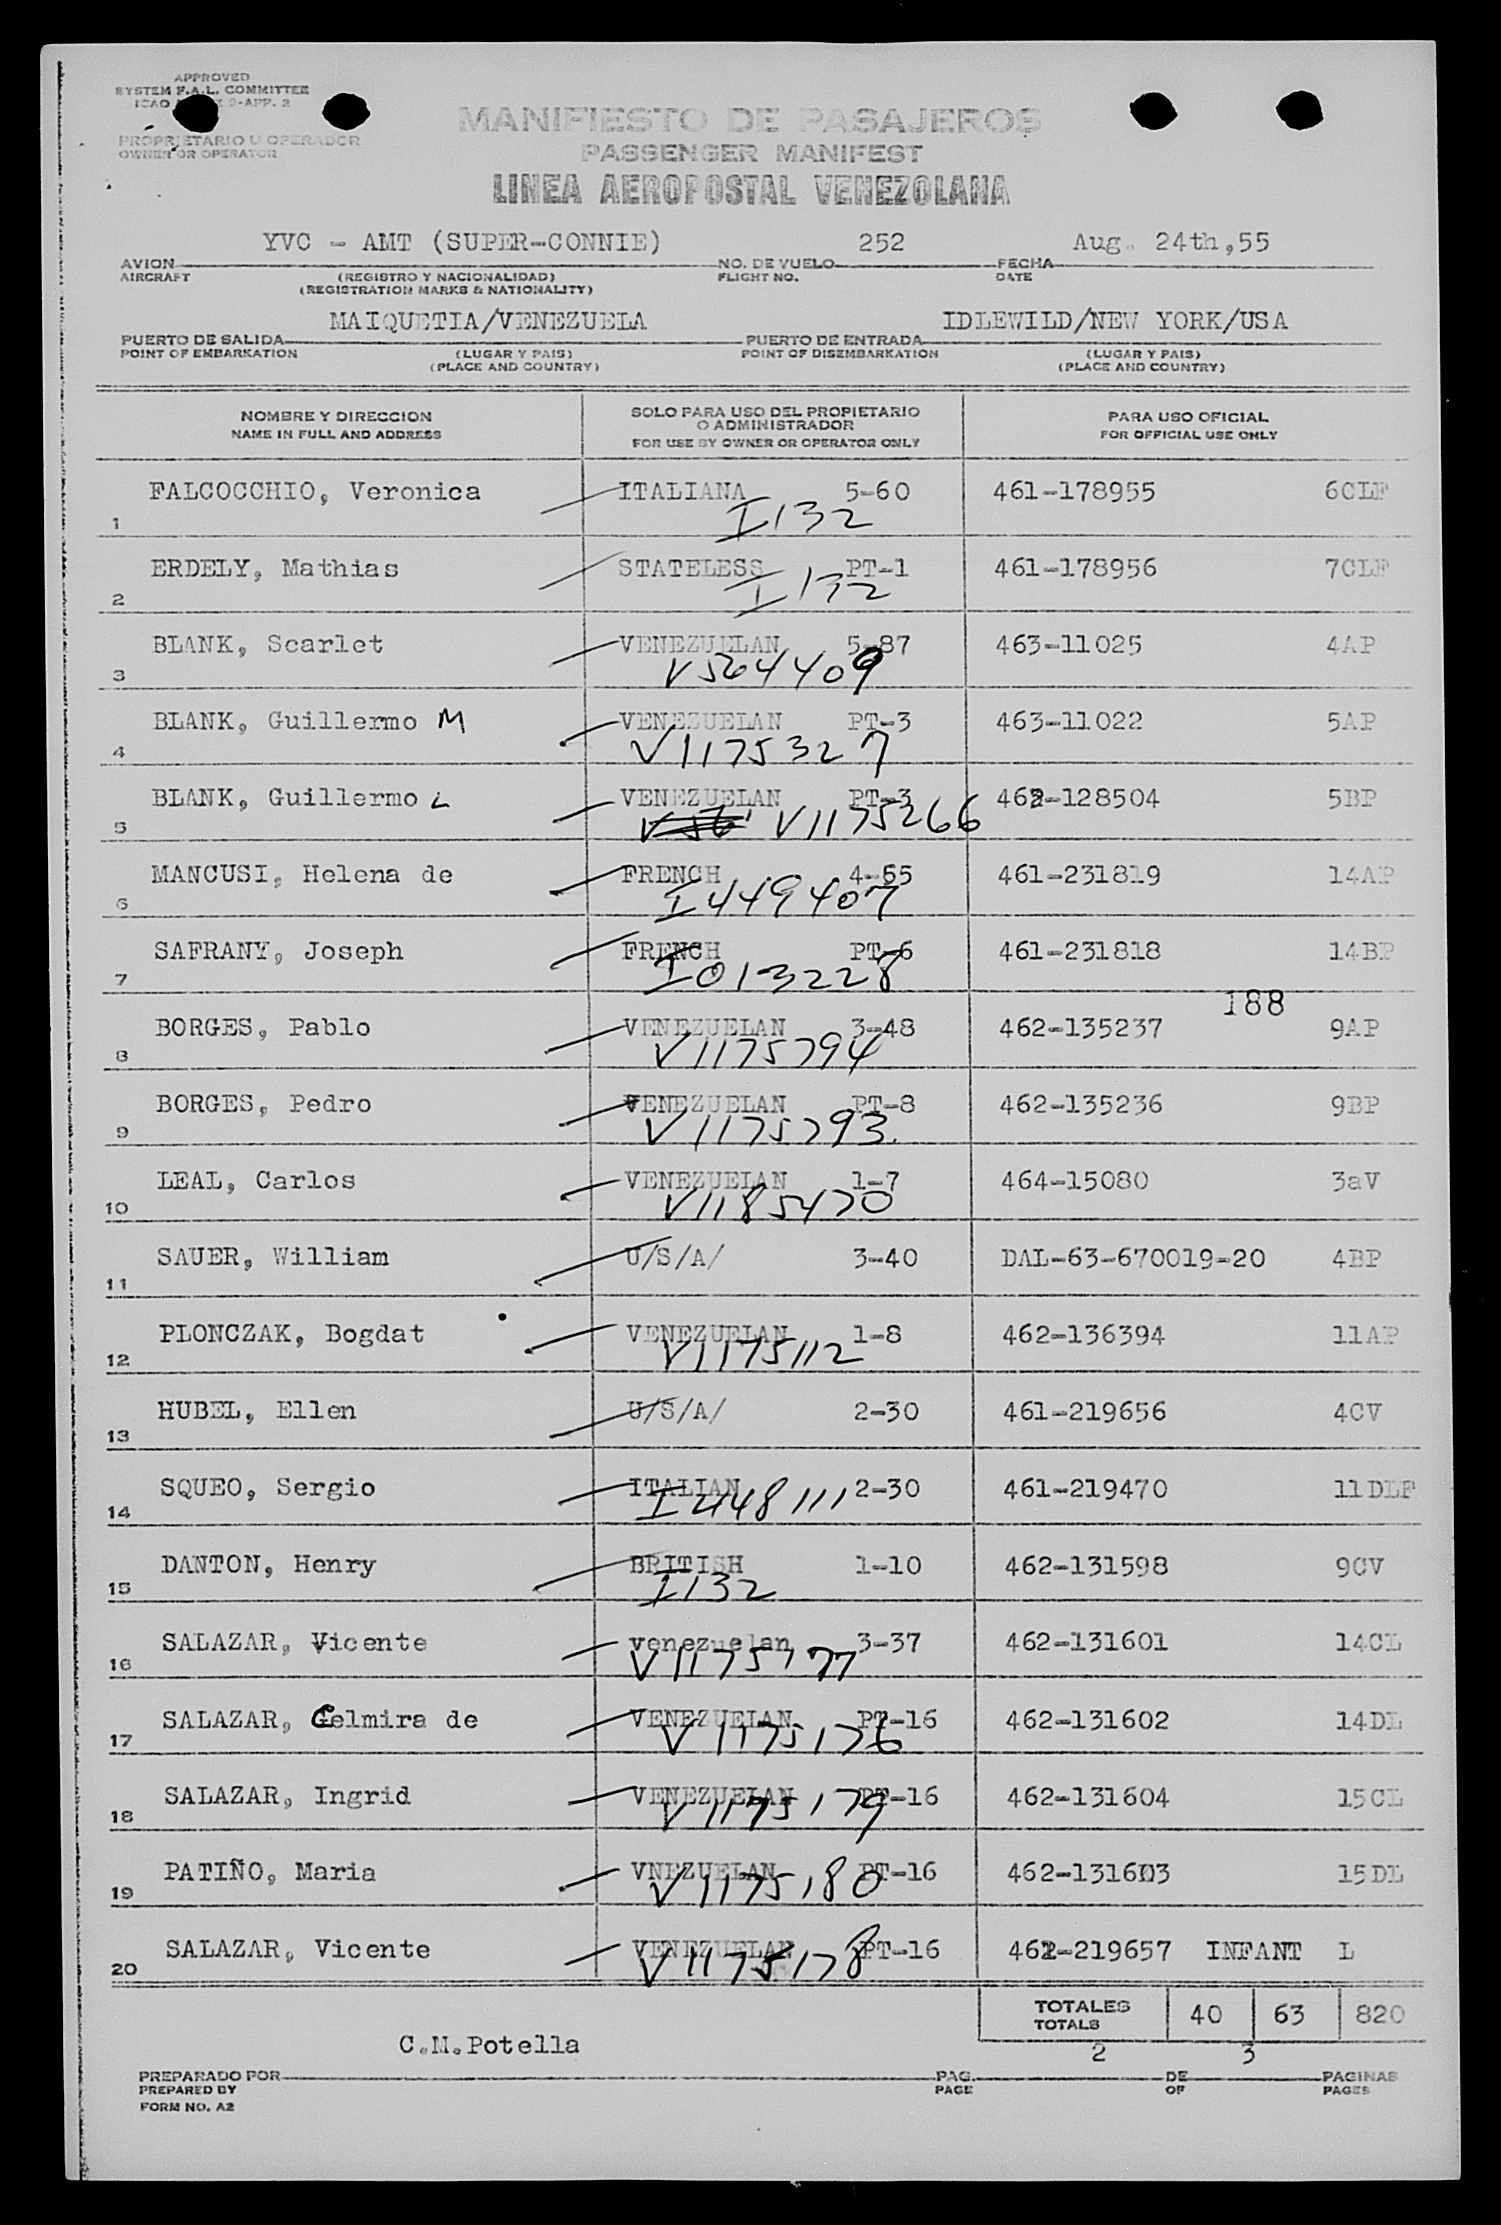 APPROVED
SYSTEM F.A.L. COMMITTEE
ICAO 9-APP. 2
PROPRIETARIO U OPERADOR
OWNER OR OPERATOR
MANIFIESTO DE PASAJEROS
PASSENGER MANIFEST
LINEA AEROPOSTAL VENEZOLANA
YVC - AMT (SUPER-CONNIE) 252 Aug. 24th,55
AVION NO. DE VUELO FECHA
AIRCRAFT (REGISTRO Y NACIONALIDAD) FLIGHT NO. DATE
(REGISTRATION MARKS & NATIONALITY)
MAIQUETIA/VENEZUELA IDLEWILD/NEW YORK/USA
PUERTO DE SALIDA PUERTO DE ENTRADA
POINT OF EMBARKATION (LUGAR Y PAIS) POINT OF DISEMBARKATION (LUGAR Y PAIS)
(PLACE AND COUNTRY) (PLACE AND COUNTRY)
NOMBRE Y DIRECCION SOLO PARA USO DEL PROPIETARIO O ADMINISTRADOR PARA USO OFICIAL
NAME IN FULL AND ADDRESS FOR USE BY OWNER OR OPERATOR ONLY FOR OFFICIAL USE ONLY
FALCOCCHIO, Veronica ITALIANA 5-60 461-178955 6CLF
1 I132
ERDELY, Mathias STATELESS PT-1 461-178956 7CLF
2 I132
BLANK, Scarlet VENEZUELAN 5-87 463-11025 4AP
3 V564409
BLANK, Guillermo M VENEZUELAN PT-3 463-11022 5AP
4 V1175327
BLANK, Guillermo L VENEZUELAN PT-3 462-128504 5BP
5 V56 V1175266
MANCUSI, Helena de FRENCH 4-55 461-231819 14AP
6 I449407
SAFRANY, Joseph FRENCH PT-6 461-231818 14BP
7 I013228
188
BORGES, Pablo VENEZUELAN 3-48 462-135237 9AP
8 V1175794
BORGES, Pedro VENEZUELAN PT-8 462-135236 9BP
9 V1175793
LEAL, Carlos VENEZUELAN 1-7 464-15080 3aV
10 V1185470
SAUER, William U/S/A/ 3-40 DAL-63-670019-20 4BP
11
PLONCZAK, Bogdat VENEZUELAN 1-8 462-136394 11AP
12 V1175112
HUBEL, Ellen U/S/A/ 2-30 461-219656 4CV
13
SQUEO, Sergio ITALIAN 2-30 461-219470 11DLF
14 I448111
DANTON, Henry BRITISH 1-10 462-131598 9CV
15 I132
SALAZAR, Vicente venezuelan 3-37 462-131601 14CL
16 V1175177
SALAZAR, Celmira de VENEZUELAN PT-16 462-131602 14DL
17 V1175176
SALAZAR, Ingrid VENEZUELAN PT-16 462-131604 15CL
18 V1175179
PATIÑO, Maria VNEZUELAN PT-16 462-131603 15DL
19 V1175180
SALAZAR, Vicente VENEZUELAN PT-16 461-219657 INFANT L
20 V1175178
TOTALES 40 63 820
TOTALS
C.M.Potella 2 3
PREPARADO POR PAG. DE PAGINAS
PREPARED BY PAGE OF PAGES
FORM NO. A2